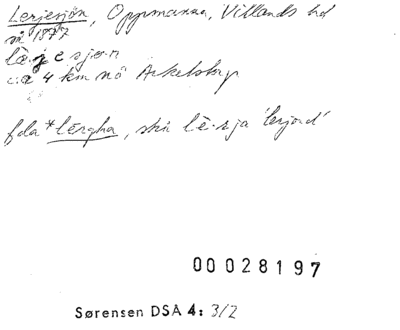 Lerjesjön, Oppmanna, Villands hd
nr 1877
lè.jesjøn
ca 4 km nö Arkelstorp
fda *lērgha, skå lè.rja 'lerjord'
00028197
Sørensen DSA 4: 3/2